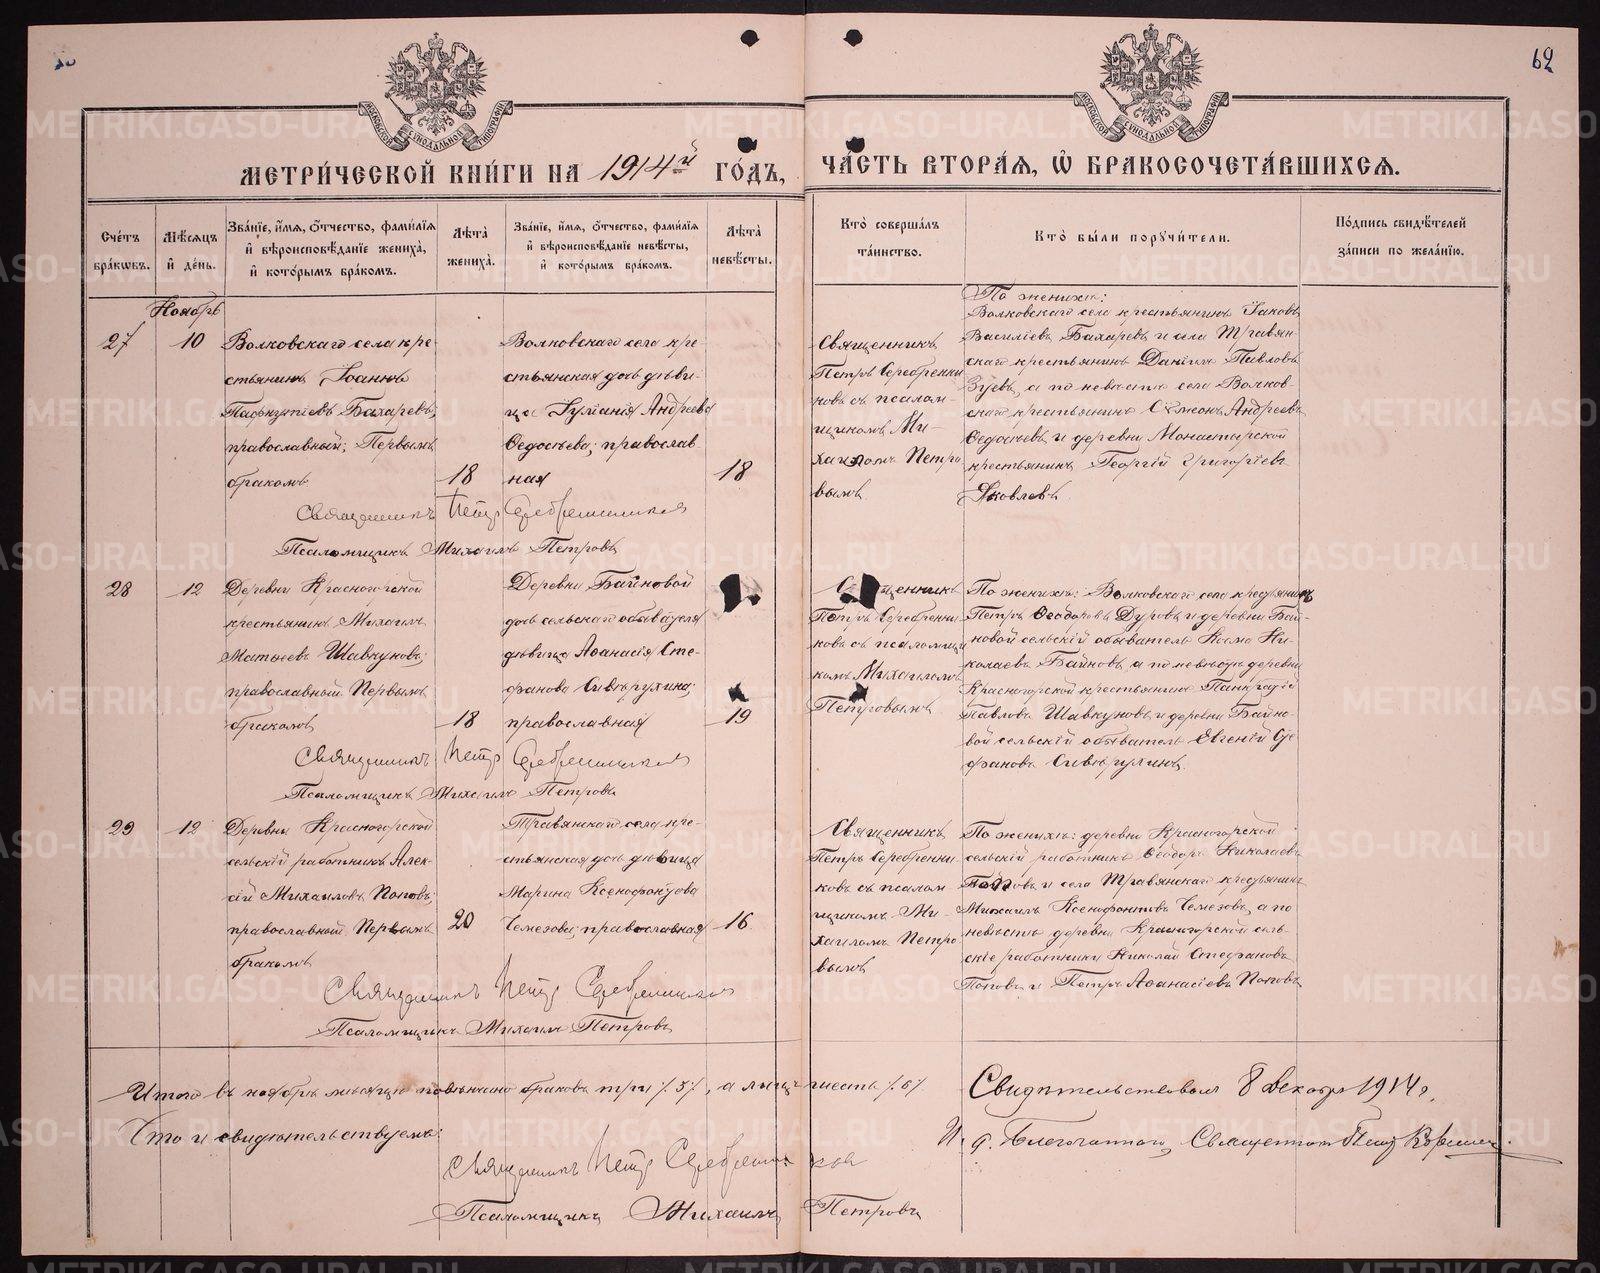 62
МОСКОВСКОЙ СѴНОДАЛЬНОЙ ТИПОГРАФІИ
МОСКОВСКОЙ СѴНОДАЛЬНОЙ ТИПОГРАФІИ
МЕТРИ́ЧЕСКОЙ КНИ́ГИ НА 1914й ГО́ДЪ,
ЧА́СТЬ ВТОРА́Я, Ѽ БРАКОСОЧЕТА́ВШИХСЯ.
Сче́тъ бра́кѡвъ.
Мѣ́сяцъ и҆ де́нь.
Зва́нїе, и҆́мя, ѻ҆́тчество, фами́лїя
и҆ вѣроисповѣ́данїе жениха̀,
и҆ кото́рымъ бра́комъ.
Лѣ́та жениха̀.
Зва́нїе, и҆́мя, ѻ҆́тчество, фами́лїя
и҆ вѣроисповѣ́данїе невѣ́сты,
и҆ кото́рымъ бра́комъ.
Лѣ́та невѣ́сты.
Кто̀ соверша́лъ
та́инство.
Кто̀ бы́ли поручи́тели.
По́дпись свидѣ́телей
за́писи по жела́нїю.
Ноябрь
27
10
Волковскаго села кре-
стьянинъ Іоаннъ
Пафнутіевъ Бахаревъ,
православный; Первымъ
бракомъ
18
Волковскаго села кре-
стьянская дочь дѣви-
ца Іуліанія Андреева
Ѳедосѣева; православ-
ная
18
Священникъ
Петръ Серебренни-
ковъ съ псалом-
щикомъ Ми-
хаиломъ Петро-
вымъ
По женихѣ:
Волковскаго села крестьянинъ Іаковъ
Василіевъ Бахаревъ и села Травян-
скаго крестьянинъ Даніилъ Павловъ
Зуевъ, а по невѣстѣ села Волков-
скаго крестьянинъ Симеонъ Андреевъ
Ѳедосѣевъ и деревни Монастырской
крестьянинъ Георгій Григоріевъ
Яковлевъ.
Священникъ Петръ Серебренниковъ
Псаломщикъ Михаилъ Петровъ
28
12
Деревни Красногорской
крестьянинъ Михаилъ
Матѳеевъ Шавкуновъ;
православный. Первымъ
бракомъ
18
Деревни Байновой
дочь сельскаго обывателя
дѣвица Аѳанасія Сте-
фанова Сивѣрухина;
православная
19
Священникъ
Петръ Серебренни-
ковъ съ псаломщи-
комъ Михаиломъ
Петровымъ
По женихѣ: Волковскаго села крестьянинъ
Петръ Ѳеодоровъ Дуровъ и деревни Бай-
новой сельскій обыватель Косма Ни-
колаевъ Байновъ, а по невѣстѣ деревни
Красногорской крестьянинъ Панкратій
Павловъ Шавкуновъ и деревни Байно-
вой сельскій обыватель Евгеній Сте-
фановъ Сивѣрухинъ.
Священникъ Петръ Серебренниковъ
Псаломщикъ Михаилъ Петровъ
29
12
Деревни Красногорской
сельскій работникъ Алек-
сій Михаиловъ Поповъ;
православный. Первымъ
бракомъ
20
Травянскаго села кре-
стьянская дочь дѣвица
Марина Ксенофонтова
Чемезова; православная
16
Священникъ
Петръ Серебренни-
ковъ съ псалом-
щикомъ Ми-
хаиломъ Петро-
вымъ
По женихѣ: деревни Красногорской
сельскій работникъ Ѳеодоръ Николаевъ
Поповъ и села Травянскаго крестьянинъ
Михаилъ Ксенофонтовъ Чемезовъ, а по
невѣстѣ деревни Красногорской сель-
скіе работники Николай Стефановъ
Поповъ и Петръ Аѳанасіевъ Поповъ
Священникъ Петръ Серебренниковъ
Псаломщикъ Михаилъ Петровъ
Итого въ ноябрѣ мѣсяцѣ повѣнчано браковъ три /.3./, а лицъ шесть /.6./
Что и свидѣтельствуемъ:
Священникъ Петръ Серебренниковъ
Псаломщикъ Михаилъ Петровъ
Свидѣтельствовалъ 8 Декабря 1914 г.
И. д. Благочиннаго, Священникъ Петр
METRIKI.GASO-URAL.RU